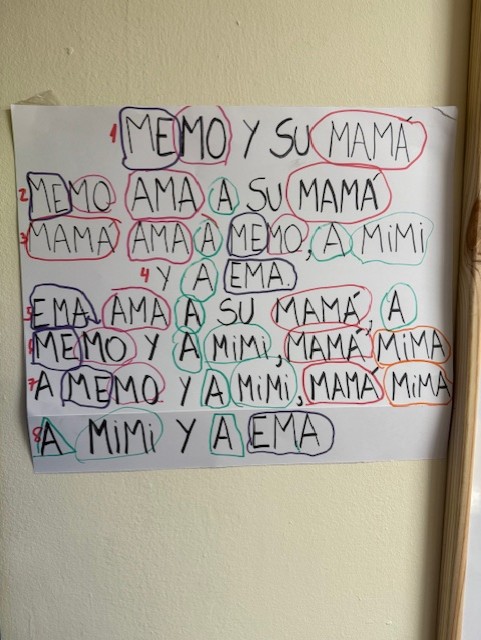 1 MEMO Y SU MAMÁ
2 MEMO AMA A SU MAMÁ
3 MAMÁ AMA A MEMO, A MIMI
4 Y A EMA.
5 EMA AMA A SU MAMÁ, A
6 MEMO Y A MIMI, MAMÁ MIMA
7 A MEMO Y A MIMI, MAMÁ MIMA
8 A MIMI Y A EMA